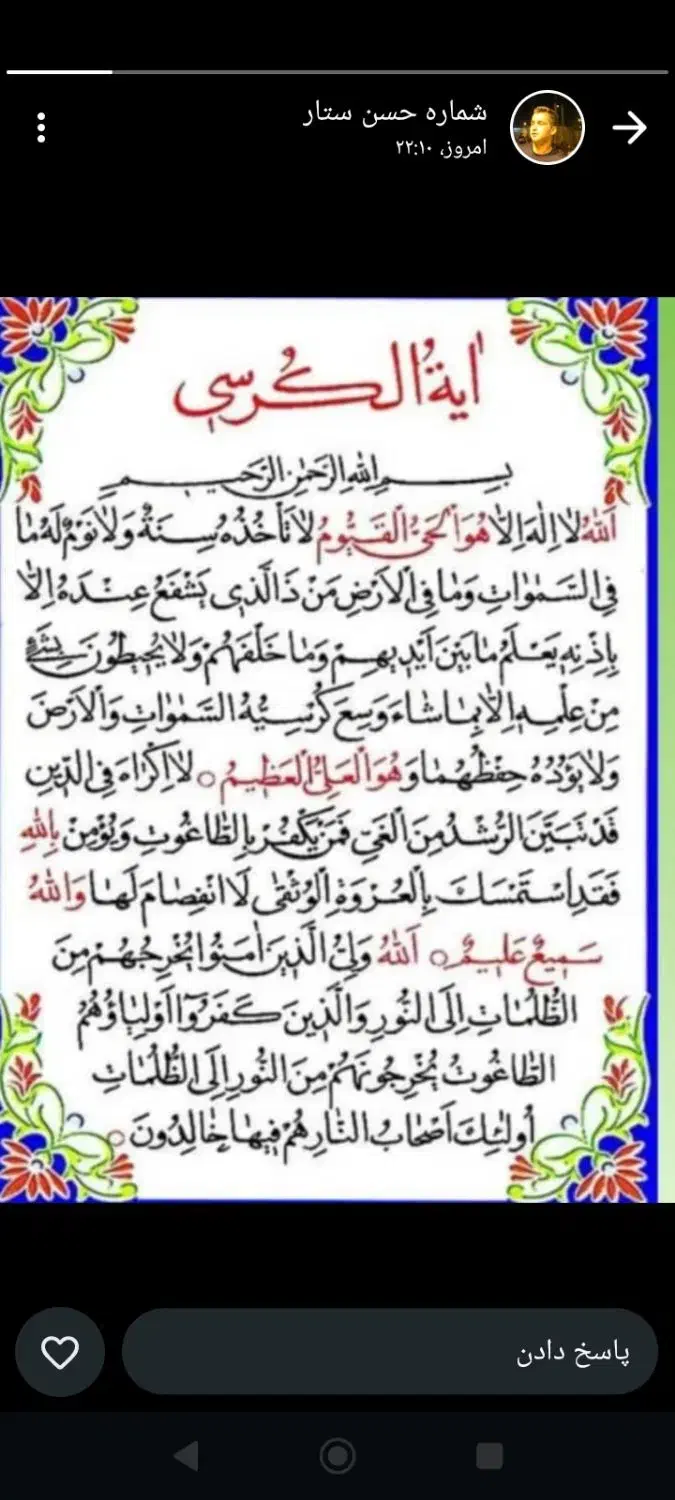 شماره حسن ستار
امروز، ۲۲:۱۰
اٰیةُ الکُرسي
بِسْمِ اللهِ الرَّحْمٰنِ الرَّحيمِ
اَللهُ لا اِلٰهَ اِلاّٰ هُوَ الْحَیُّ الْقَیُّومُ لا تَأخُذُهُ سِنَةٌ وَلا نَوْمٌ لَهُ مٰا
فِی السَّمٰوٰاتِ وَمٰا فِی الْاَرْضِ مَنْ ذَا الَّذی یَشْفَعُ عِنْدَهُ اِلاّٰ
بِاِذْنِهِ یَعْلَمُ مٰا بَیْنَ اَیْدیهِمْ وَمٰا خَلْفَهُمْ وَلا یُحیطُونَ بِشَیْءٍ
مِنْ عِلْمِهِ اِلاّٰ بِمٰا شٰاءَ وَسِعَ کُرْسِیُّهُ السَّمٰوٰاتِ وَالْاَرْضَ
وَلا یَؤُدُهُ حِفْظُهُمٰا وَهُوَ الْعَلِیُّ الْعَظیمُ ○ لا اِکْرٰاهَ فِی الدّینِ
قَدْ تَبَیَّنَ الرُّشْدُ مِنَ الْغَیِّ فَمَنْ یَکْفُرْ بِالطّٰاغُوتِ وَیُؤْمِنْ بِاللهِ
فَقَدِ اسْتَمْسَكَ بِالْعُرْوَةِ الْوُثْقیٰ لَا انْفِصٰامَ لَهٰا وَاللهُ
سَمیعٌ عَلیمٌ ○ اَللهُ وَلِیُّ الَّذینَ اٰمَنُوا یُخْرِجُهُمْ مِنَ
الظُّلُمٰاتِ اِلَی النُّورِ وَالَّذینَ کَفَرُوا اَوْلِیٰاؤُهُمُ
الطّٰاغُوتُ یُخْرِجُونَهُمْ مِنَ النُّورِ اِلَی الظُّلُمٰاتِ
اُولٰئِكَ اَصْحٰابُ النّٰارِ هُمْ فیهٰا خٰالِدُونَ ○
پاسخ دادن